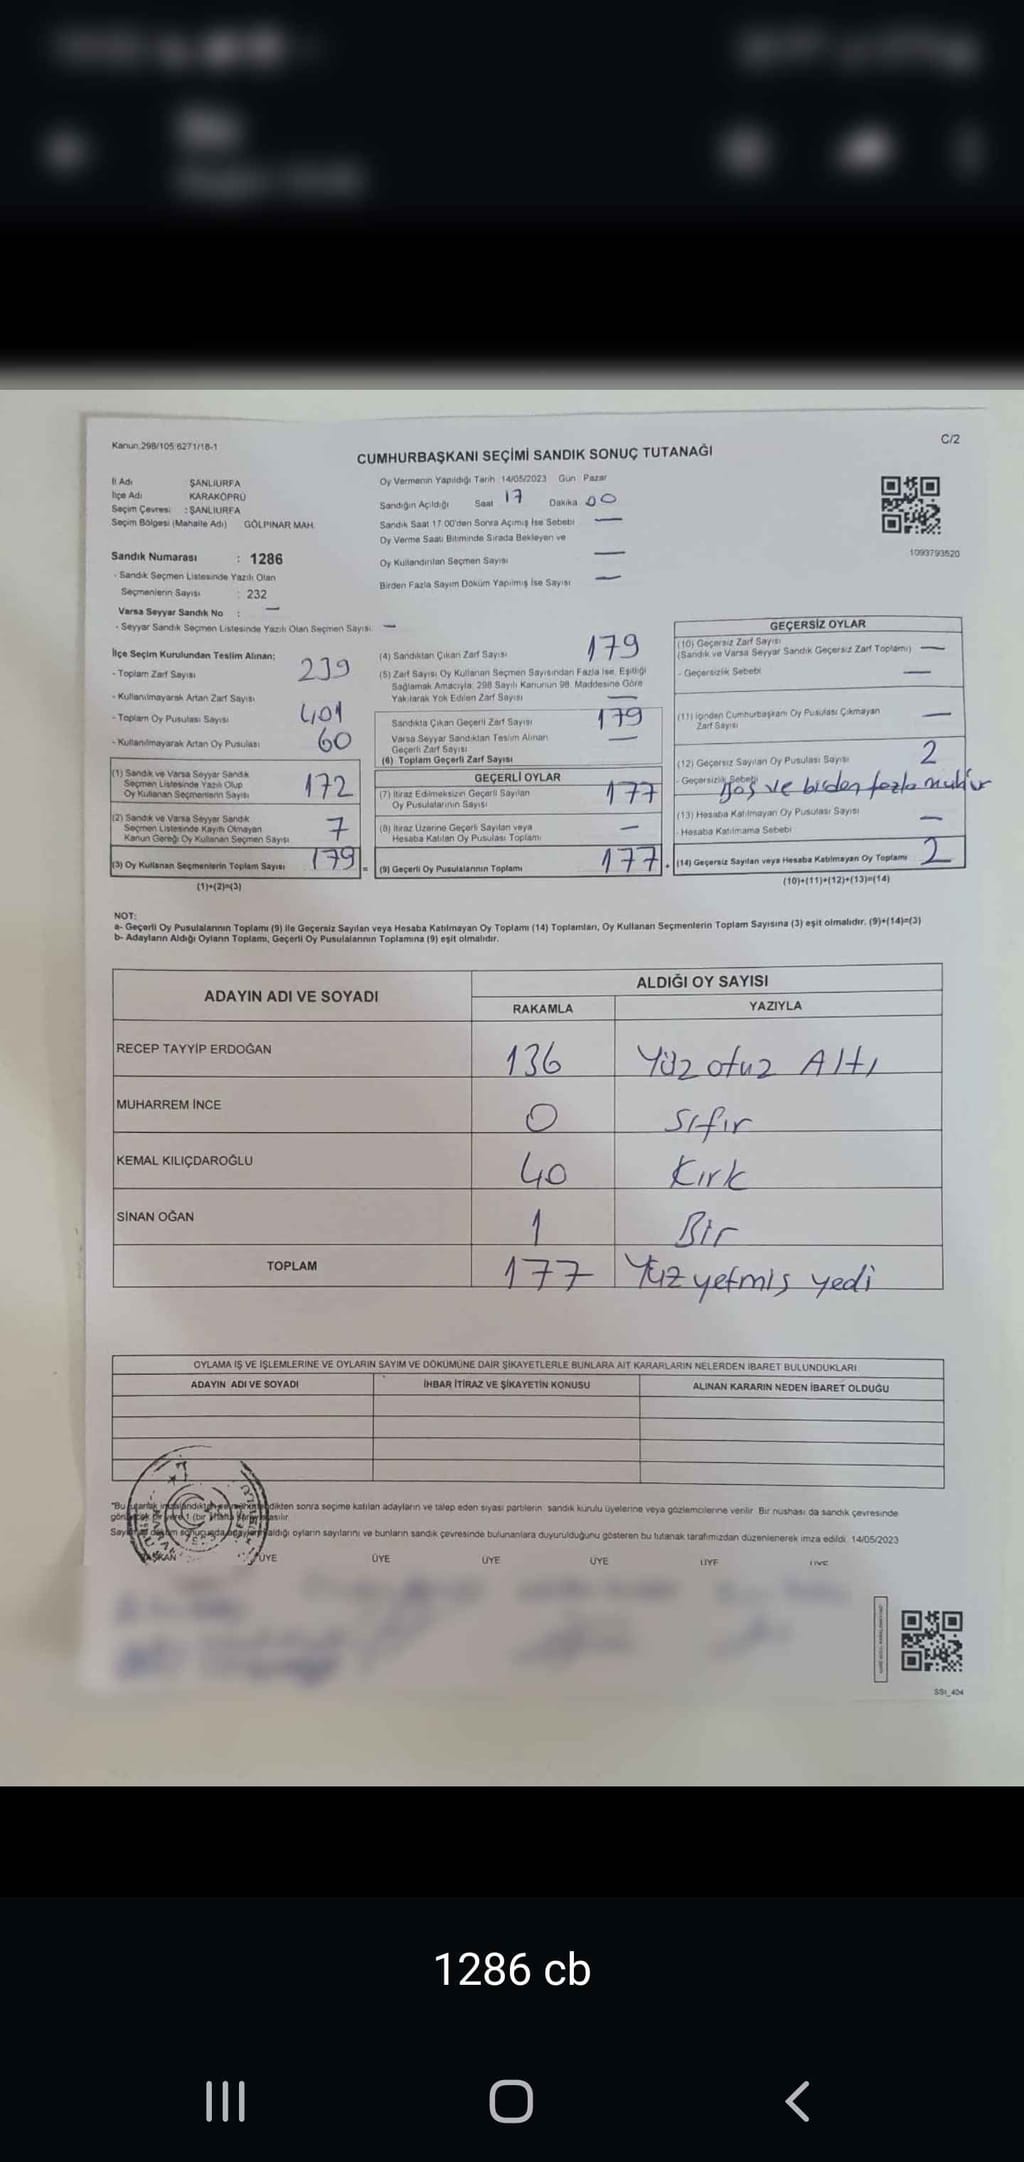 Kanun:298/105 6271/18-1
C/2
CUMHURBAŞKANI SEÇİMİ SANDIK SONUÇ TUTANAĞI
İl Adı ŞANLIURFA
İlçe Adı KARAKÖPRÜ
Seçim Çevresi : ŞANLIURFA
Seçim Bölgesi (Mahalle Adı) GÖLPINAR MAH.
Sandık Numarası : 1286
- Sandık Seçmen Listesinde Yazılı Olan
Seçmenlerin Sayısı : 232
Varsa Seyyar Sandık No : —
- Seyyar Sandık Seçmen Listesinde Yazılı Olan Seçmen Sayısı: —
Oy Vermenin Yapıldığı Tarih 14/05/2023 Gün Pazar
Sandığın Açıldığı Saat 17 Dakika 00
Sandık Saat 17:00'den Sonra Açımış İse Sebebi —
Oy Verme Saati Bitiminde Sırada Bekleyen ve
Oy Kullandırılan Seçmen Sayısı —
Birden Fazla Sayım Döküm Yapılmış İse Sayısı —
1093793520
İlçe Seçim Kurulundan Teslim Alınan;
- Toplam Zarf Sayısı 239
- Kullanılmayarak Artan Zarf Sayısı
- Toplam Oy Pusulası Sayısı 401
- Kullanılmayarak Artan Oy Pusulası 60
(1) Sandık ve Varsa Seyyar Sandık
Seçmen Listesinde Yazılı Olup
Oy Kullanan Seçmenlerin Sayısı 172
(2) Sandık ve Varsa Seyyar Sandık
Seçmen Listesinde Kayıtlı Olmayan
Kanun Gereği Oy Kullanan Seçmen Sayısı 7
(3) Oy Kullanan Seçmenlerin Toplam Sayısı 179 =
(1)+(2)=(3)
(4) Sandıktan Çıkan Zarf Sayısı 179
(5) Zarf Sayısı Oy Kullanan Seçmen Sayısından Fazla İse, Eşitliği
Sağlamak Amacıyla; 298 Sayılı Kanunun 98. Maddesine Göre
Yakılarak Yok Edilen Zarf Sayısı —
Sandıkta Çıkan Geçerli Zarf Sayısı 179
Varsa Seyyar Sandıktan Teslim Alınan
Geçerli Zarf Sayısı —
(6) Toplam Geçerli Zarf Sayısı
GEÇERLİ OYLAR
(7) İtiraz Edilmeksizin Geçerli Sayılan
Oy Pusulalarının Sayısı 177
(8) İtiraz Üzerine Geçerli Sayılan veya
Hesaba Katılan Oy Pusulası Toplamı —
(9) Geçerli Oy Pusulalarının Toplamı 177
GEÇERSİZ OYLAR
(10) Geçersiz Zarf Sayısı
(Sandık ve Varsa Seyyar Sandık Geçersiz Zarf Toplamı) —
- Geçersizlik Sebebi —
(11) İçinden Cumhurbaşkanı Oy Pusulası Çıkmayan
Zarf Sayısı —
(12) Geçersiz Sayılan Oy Pusulası Sayısı 2
- Geçersizlik Sebebi Boş ve birden fazla mühür
(13) Hesaba Katılmayan Oy Pusulası Sayısı —
- Hesaba Katılmama Sebebi
(14) Geçersiz Sayılan veya Hesaba Katılmayan Oy Toplamı 2
(10)+(11)+(12)+(13)=(14)
NOT:
a- Geçerli Oy Pusulalarının Toplamı (9) ile Geçersiz Sayılan veya Hesaba Katılmayan Oy Toplamı (14) Toplamları, Oy Kullanan Seçmenlerin Toplam Sayısına (3) eşit olmalıdır. (9)+(14)=(3)
b- Adayların Aldığı Oyların Toplamı, Geçerli Oy Pusulalarının Toplamına (9) eşit olmalıdır.
ADAYIN ADI VE SOYADI
ALDIĞI OY SAYISI
RAKAMLA YAZIYLA
RECEP TAYYİP ERDOĞAN 136 Yüz otuz Altı
MUHARREM İNCE 0 Sıfır
KEMAL KILIÇDAROĞLU 40 Kırk
SİNAN OĞAN 1 Bir
TOPLAM 177 Yüz yetmiş yedi
OYLAMA İŞ VE İŞLEMLERİNE VE OYLARIN SAYIM VE DÖKÜMÜNE DAİR ŞİKAYETLERLE BUNLARA AİT KARARLARIN NELERDEN İBARET BULUNDUKLARI
ADAYIN ADI VE SOYADI İHBAR İTİRAZ VE ŞİKAYETİN KONUSU ALINAN KARARIN NEDEN İBARET OLDUĞU
"Bu dikten sonra seçime katılan adayların ve talep eden siyasi partilerin sandık kurulu üyelerine veya gözlemcilerine verilir. Bir nushası da sandık çevresinde
aldığı oyların sayılarını ve bunların sandık çevresinde bulunanlara duyurulduğunu gösteren bu tutanak tarafımızdan düzenlenerek imza edildi. 14/05/2023
BAŞKAN ÜYE ÜYE ÜYE ÜYE ÜYE ÜYE
SSt_404
1286 cb